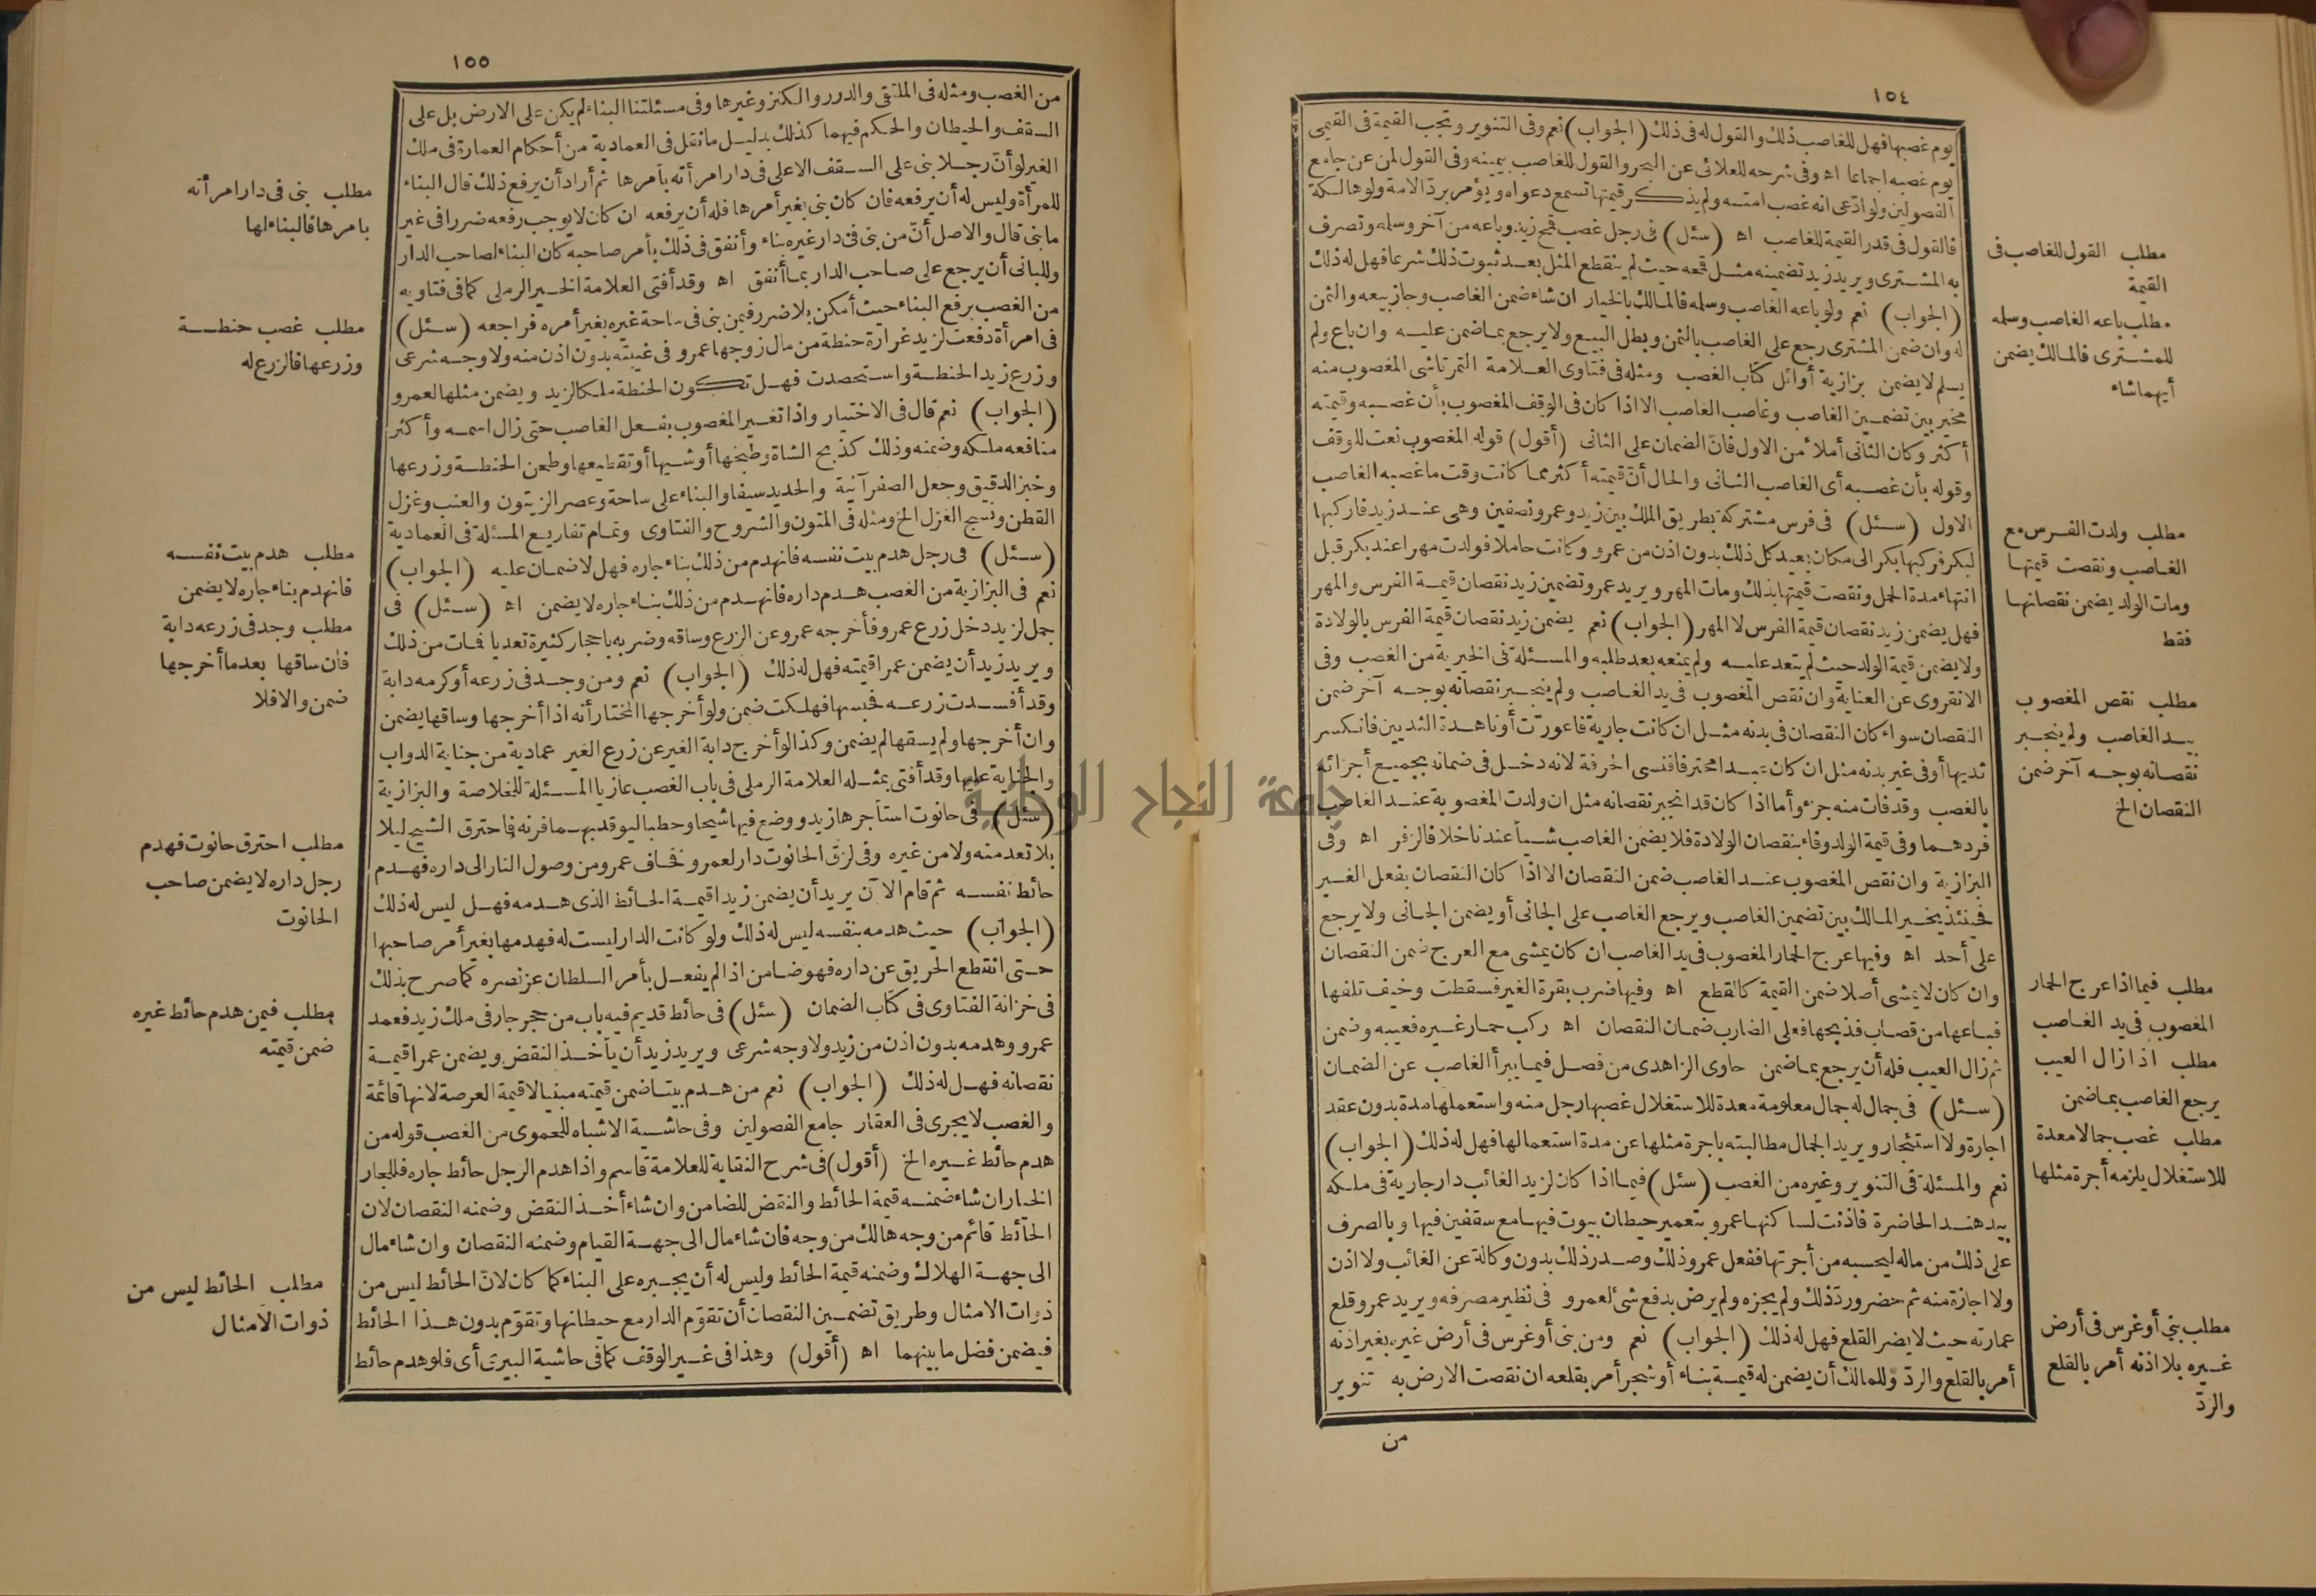 ١٥٤
يوم غصبها فهل للغاصب ذلك والقول له فى ذلك (الجواب) نعم وفى التنوير وتجب القيمة فى القيمى
يوم غصبه اجماعا اه وفى شرحه للعلائى عن البحر والقول للغاصب بيمينه وفى القول لمن عن جامع
الفصولين ولو ادّعى انه غصب امته ولم يذكر قيمتها تسمع دعواه ويؤمر بردّ الامة ولو هالكة
فالقول فى قدر القيمة للغاصب اه (سئل) فى رجل غصب قمح زيد وباعه من آخر وسلمه وتصرف
به المشترى ويريد زيد تضمينه مثل قمحه حيث لم ينقطع المثل بعد ثبوت ذلك شرعا فهل له ذلك
(الجواب) نعم ولو باعه الغاصب وسلمه فالمالك بالخيار ان شاء ضمن الغاصب وجاز بيعه والثمن
له وان ضمن المشترى رجع على الغاصب بالثمن وبطل البيع ولا يرجع بما ضمن عليه وان باع ولم
يسلم لا يضمن بزازية أوائل كتاب الغصب ومثله فى فتاوى العلامة التمرتاشى المغصوب منه
مخير بين تضمين الغاصب وغاصب الغاصب الا اذا كان فى الوقف المغصوب بأن غصبه وقيمته
أكثر وكان الثانى أملأ من الاول فانّ الضمان على الثانى (أقول) قوله المغصوب نعت للوقف
وقوله بأن غصبه أى الغاصب الثانى والحال أنّ قيمته أكثر مما كانت وقت ما غصبه الغاصب
الاول (سئل) فى فرس مشتركة بطريق الملك بين زيد وعمرو نصفين وهى عند زيد فاركبها
لبكر فركبها بكر الى مكان بعيد كل ذلك بدون اذن من عمرو وكانت حاملا فولدت مهرا عند بكر قبل
انتهاء مدة الحمل ونقصت قيمتها بذلك ومات المهر ويريد عمرو تضمين زيد نقصان قيمة الفرس والمهر
فهل يضمن زيد نقصان قيمة الفرس لا المهر (الجواب) نعم يضمن زيد نقصان قيمة الفرس بالولادة
ولا يضمن قيمة الولد حيث لم يتعد عليه ولم يمنعه بعد طلبه والمسئلة فى الخيرية من الغصب وفى
الانقروى عن العناية وان نقص المغصوب فى يد الغاصب ولم ينجبر نقصانه بوجه آخر ضمن
النقصان سواء كان النقصان فى بدنه مثل ان كانت جارية فاعورّت أو ناهدة الثديين فانكسر
ثديها أو فى غير بدنه مثل ان كان عبدا محترفا فنسى الحرفة لانه دخل فى ضمانه بجميع أجزائه
بالغصب وقد فات منه جزء وأما اذا كان قد انجبر نقصانه مثل ان ولدت المغصوبة عند الغاصب
فردهما وفى قيمة الولد وفاء بنقصان الولادة فلا يضمن الغاصب شيأ عندنا خلافا لزفر اه وفى
البزازية وان نقص المغصوب عند الغاصب ضمن النقصان الا اذا كان النقصان بفعل الغير
فحينئذ يخير المالك بين تضمين الغاصب ويرجع الغاصب على الجانى أو يضمن الجانى ولا يرجع
على أحد اه وفيها عرج الحمار المغصوب فى يد الغاصب ان كان يمشى مع العرج ضمن النقصان
وان كان لا يمشى أصلا ضمن القيمة كالقطع اه وفيها ضرب بقرة الغير فسقطت وخيف تلفها
فباعها من قصاب فذبحها فعلى الضارب ضمان النقصان اه ركب حمار غيره فعيبه وضمن
ثم زال العيب فله أن يرجع بما ضمن حاوى الزاهدى من فصل فيما يبرأ الغاصب عن الضمان
(سئل) فى جمال له جمال معلومة معدة للاستغلال غصبها رجل منه واستعملها مدة بدون عقد
اجارة ولا استئجار ويريد الجمال مطالبته باجرة مثلها عن مدة استعمالها فهل له ذلك (الجواب)
نعم والمسئلة فى التنوير وغيره من الغصب (سئل) فيما اذا كان لزيد الغائب دار جارية فى ملكه
بيد هند الحاضرة فاذنت لساكنها عمرو بتعمير حيطان بيوت فيها مع سقفين فيها وبالصرف
على ذلك من ماله ليحسبه من أجرتها ففعل عمرو ذلك وصدر ذلك بدون وكالة عن الغائب ولا اذن
ولا اجازة منه ثم حضر وردّ ذلك ولم يجزه ولم يرض بدفع شئ لعمرو فى نظير مصرفه ويريد عمرو قلع
عمارته حيث لا يضر القلع فهل له ذلك (الجواب) نعم ومن بنى أو غرس فى أرض غيره بغير اذنه
أمر بالقلع والردّ وللمالك أن يضمن له قيمة بناء أو شجر أمر بقلعه ان نقصت الارض به تنوير
من
مطلب القول للغاصب فى
القيمة
مطلب باعه الغاصب وسلمه
للمشترى فالمالك يضمن
أيهما شاء
مطلب ولدت الفرس مع
الغاصب ونقصت قيمتها
ومات الولد يضمن نقصانها
فقط
مطلب نقص المغصوب
بيد الغاصب ولم ينجبر
نقصانه بوجه آخر ضمن
النقصان الخ
مطلب فيما اذا عرج الحمار
المغصوب فى يد الغاصب
مطلب اذا زال العيب
يرجع الغاصب بما ضمن
مطلب غصب جمالا معدة
للاستغلال يلزمه أجرة مثلها
مطلب بنى أو غرس فى أرض
غيره بلا اذنه أمر بالقلع
والردّ
١٥٥
من الغصب ومثله فى الملتقى والدرر والكنز وغيرها وفى مسئلتنا البناء لم يكن على الارض بل على
السقف والحيطان والحكم فيهما كذلك بدليل ما نقل فى العمادية من أحكام العمارة فى ملك
الغير لو أنّ رجلا بنى على السقف الاعلى فى دار امرأته بأمرها ثم أراد أن يرفع ذلك قال البناء
للمرأة وليس له أن يرفعه فان كان بنى بغير أمرها فله أن يرفعه ان كان لا يوجب رفعه ضررا فى غير
ما بنى قال والاصل أنّ من بنى فى دار غيره بناء وأنفق فى ذلك بأمر صاحبه كان البناء لصاحب الدار
وللبانى أن يرجع على صاحب الدار بما أنفق اه وقد أفتى العلامة الخير الرملى كما فى فتاويه
من الغصب برفع البناء حيث أمكن بلا ضرر فيمن بنى فى ساحة غيره بغير أمره فراجعه (سئل)
فى امرأة دفعت لزيد غرارة حنطة من مال زوجها عمرو فى غيبته بدون اذن منه ولا وجه شرعى
وزرع زيد الحنطة واستحصدت فهل تكون الحنطة ملكا لزيد ويضمن مثلها لعمرو
(الجواب) نعم قال فى الاختيار واذا تغير المغصوب بفعل الغاصب حتى زال اسمه وأكثر
منافعه ملكه وضمنه وذلك كذبح الشاة وطبخها أو شيها أو تقطيعها وطحن الحنطة وزرعها
وخبز الدقيق وجعل الصفر آنية والحديد سيفا والبناء على ساحة وعصر الزيتون والعنب وغزل
القطن ونسج الغزل الخ ومثله فى المتون والشروح والفتاوى وتمام تفاريع المسئلة فى العمادية
(سئل) فى رجل هدم بيت نفسه فانهدم من ذلك بناء جاره فهل لا ضمان عليه (الجواب)
نعم فى البزازية من الغصب هدم داره فانهدم من ذلك بناء جاره لا يضمن اه (سئل) فى
جمل لزيد دخل زرع عمرو فأخرجه عمرو عن الزرع وساقه وضربه باحجار كثيرة تعديا فمات من ذلك
ويريد زيد أن يضمن عمرا قيمته فهل له ذلك (الجواب) نعم ومن وجد فى زرعه أو كرمه دابة
وقد أفسدت زرعه فحبسها فهلكت ضمن ولو أخرجها المختار أنه اذا أخرجها وساقها يضمن
وان أخرجها ولم يسقها لم يضمن وكذا لو أخرج دابة الغير عن زرع الغير عمادية من جناية الدواب
والجناية عليها وقد أفتى بمثله العلامة الرملى فى باب الغصب عازيا المسئلة للخلاصة والبزازية
(سئل) فى حانوت استأجرها زيد ووضع فيها شيحا وحطبا ليوقد بهما فرنه فاحترق الشيح ليلا
بلا تعد منه ولا من غيره وفى لزق الحانوت دار لعمرو فخاف عمرو من وصول النار الى داره فهدم
حائط نفسه ثم قام الآن يريد أن يضمن زيدا قيمة الحائط الذى هدمه فهل ليس له ذلك
(الجواب) حيث هدمه بنفسه ليس له ذلك ولو كانت الدار ليست له فهدمها بغير أمر صاحبها
حتى انقطع الحريق عن داره فهو ضامن اذا لم يفعل بأمر السلطان عز نصره كما صرح بذلك
فى خزانة الفتاوى فى كتاب الضمان (سئل) فى حائط قديم فيه باب من حجر جار فى ملك زيد فعمد
عمرو وهدمه بدون اذن من زيد ولا وجه شرعى ويريد زيد أن يأخذ النقض ويضمن عمرا قيمة
نقصانه فهل له ذلك (الجواب) نعم من هدم بيتا ضمن قيمته مبنيا لا قيمة العرصة لانها قائمة
والغصب لا يجرى فى العقار جامع الفصولين وفى حاشية الاشباه للحموى من الغصب قوله من
هدم حائط غيره الخ (أقول) فى شرح النقاية للعلامة قاسم واذا هدم الرجل حائط جاره فللجار
الخيار ان شاء ضمنه قيمة الحائط والنقض للضامن وان شاء أخذ النقض وضمنه النقصان لان
الحائط قائم من وجه هالك من وجه فان شاء مال الى جهة القيام وضمنه النقصان وان شاء مال
الى جهة الهلاك وضمنه قيمة الحائط وليس له أن يجبره على البناء كما كان لانّ الحائط ليس من
ذوات الامثال وطريق تضمين النقصان أن تقوّم الدار مع حيطانها وتقوّم بدون هذا الحائط
فيضمن فضل ما بينهما اه (أقول) وهذا فى غير الوقف كما فى حاشية البيرى أى فلو هدم حائط
مطلب بنى فى دار امرأته
بامرها فالبناء لها
مطلب غصب حنطة
وزرعها فالزرع له
مطلب هدم بيت نفسه
فانهدم بناء جاره لا يضمن
مطلب وجد فى زرعه دابة
فان ساقها بعدما أخرجها
ضمن والا فلا
مطلب احترق حانوت فهدم
رجل داره لا يضمن صاحب
الحانوت
مطلب فيمن هدم حائط غيره
ضمن قيمته
مطلب الحائط ليس من
ذوات الأمثال
جامعة النجاح الوطنية